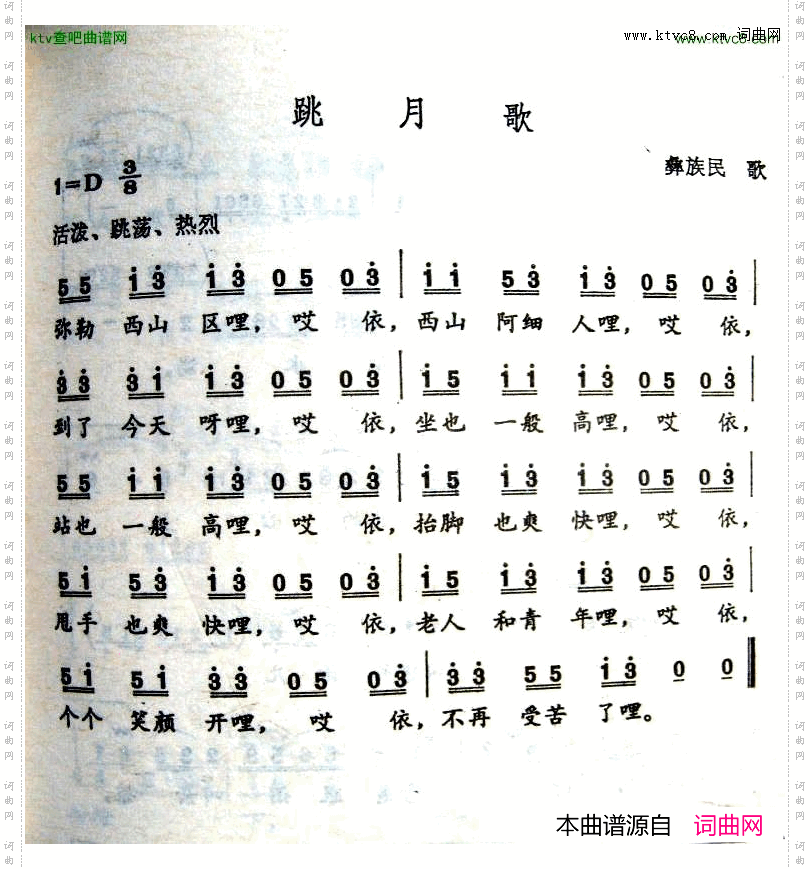 ktv查吧曲谱网
www.ktvc8.com 词曲网
www.ktvc8.com
跳月歌
1=D 3/8
彝族民歌
活泼、跳荡、热烈
55 i3̇ i3̇ 05 03̇ | ii 53̇ i3̇ 05 03̇ |
弥勒 西山 区哩，哎 依，西山 阿细 人哩，哎 依，
3̇3̇ 3̇i i3̇ 05 03̇ | i5 ii i3̇ 05 03̇ |
到了 今天 呀哩，哎 依，坐也 一般 高哩，哎 依，
55 ii i3̇ 05 03̇ | i5 i3̇ i3̇ 05 03̇ |
站也 一般 高哩，哎 依，抬脚 也爽 快哩，哎 依，
5i 53̇ i3̇ 05 03̇ | i5 i3̇ i3̇ 05 03̇ |
甩手 也爽 快哩，哎 依，老人 和青 年哩，哎 依，
5i 5i 3̇3̇ 05 03̇ | 3̇3̇ 55 i3̇ 0 0
个个 笑颜 开哩，哎 依，不再 受苦 了哩。
本曲谱源自 词曲网